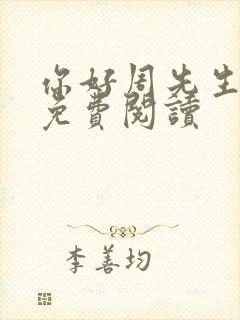 你好周先生
免費閱讀
李善均